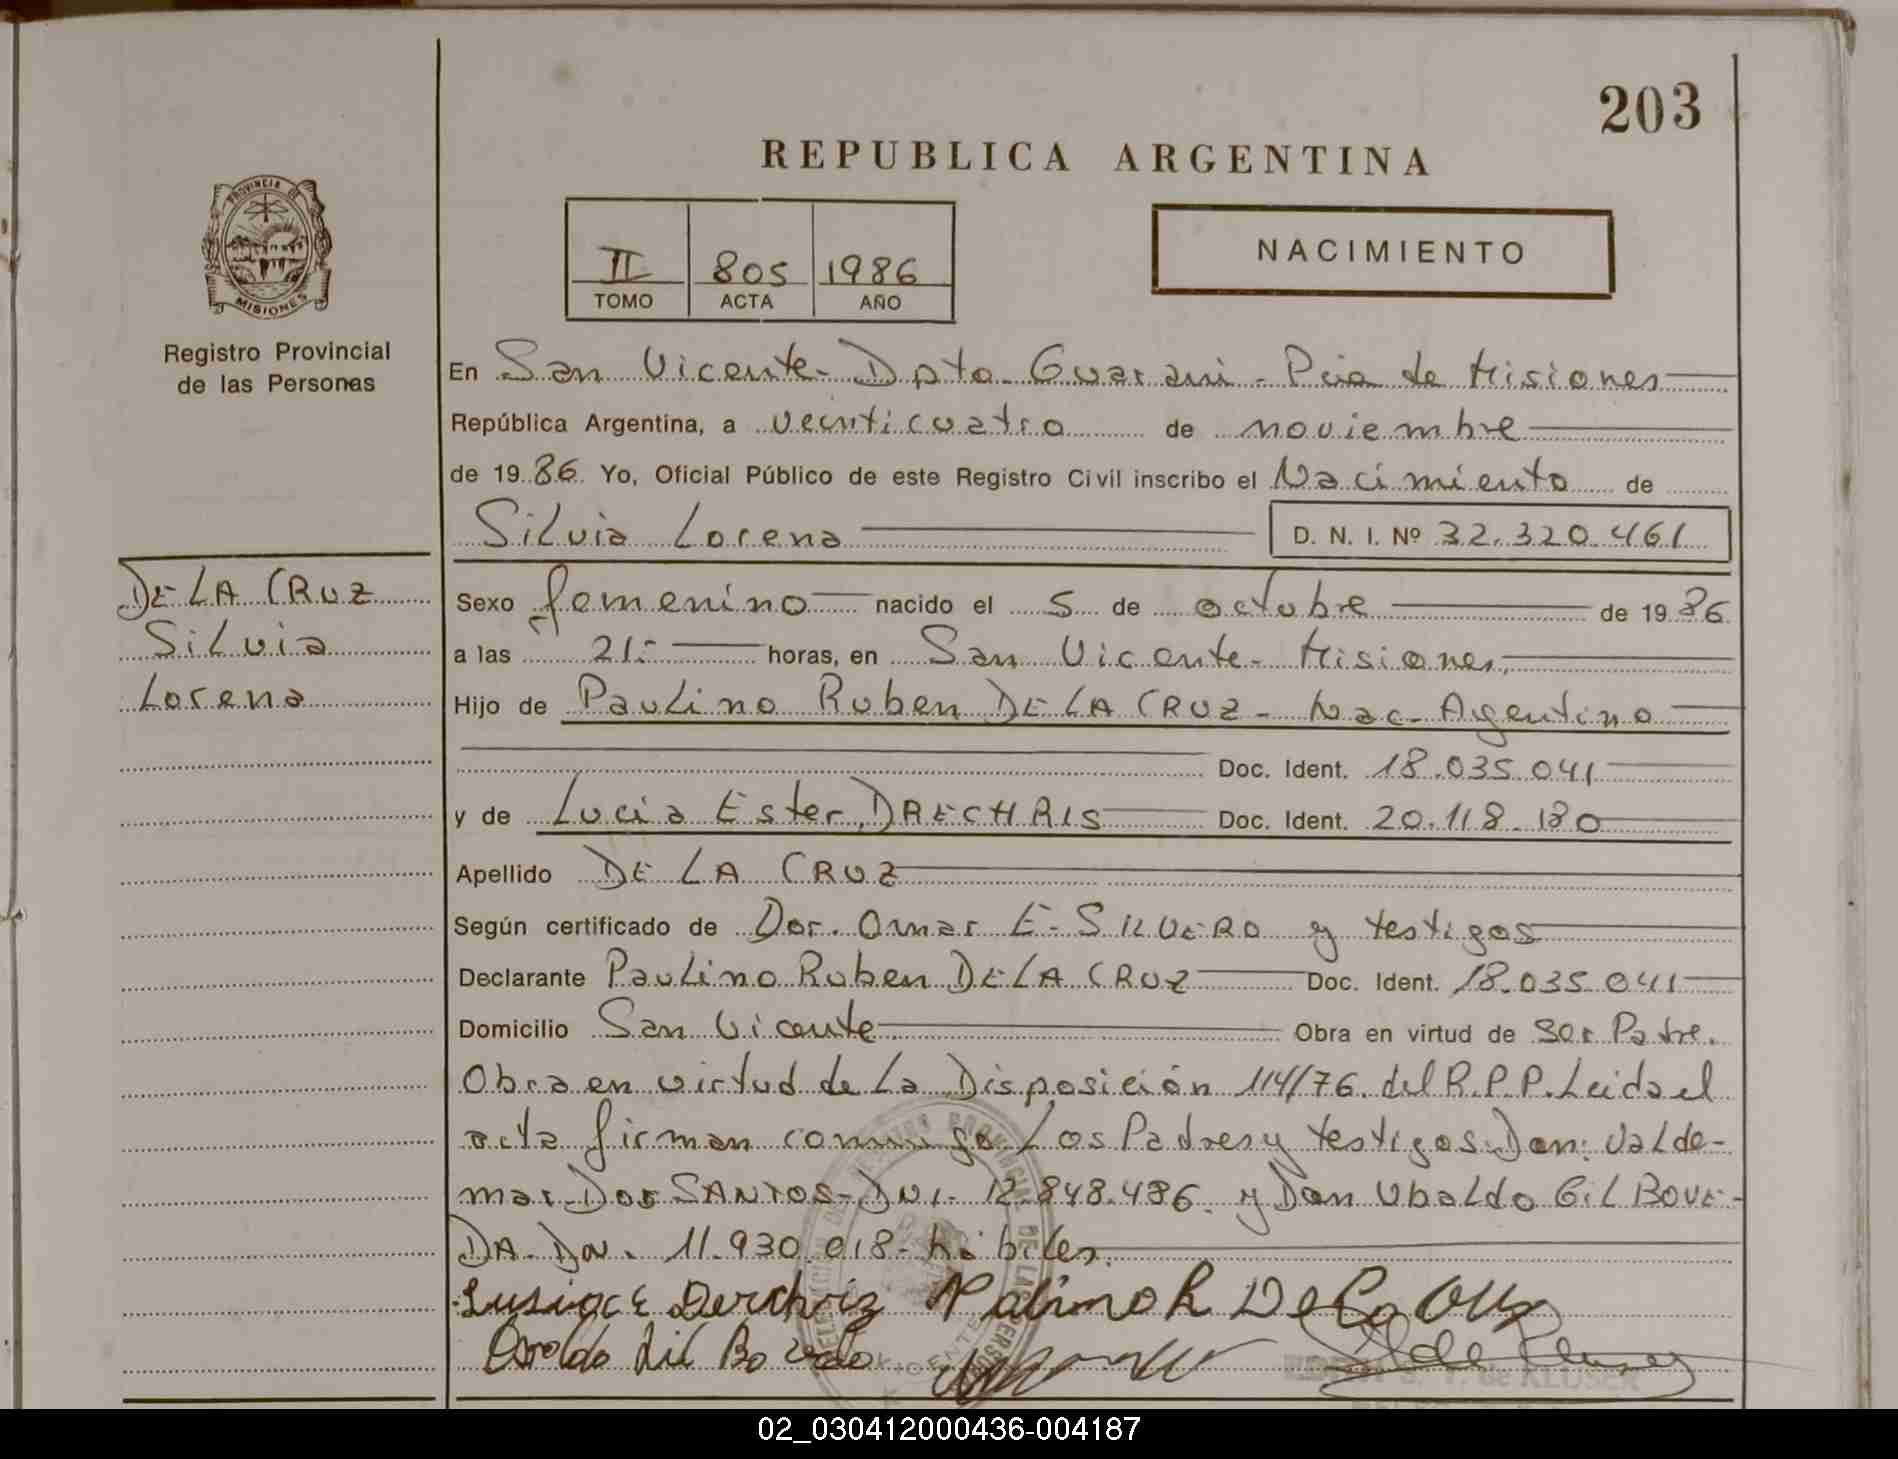 203
REPUBLICA ARGENTINA
PROVINCIA DE
MISIONES
II 805 1986
TOMO ACTA AÑO
NACIMIENTO
Registro Provincial
de las Personas
En San Vicente - Dpto. Guarani - Pcia de Misiones
República Argentina, a veinticuatro de noviembre
de 1986 Yo, Oficial Público de este Registro Civil inscribo el Nacimiento de
Silvia Lorena D. N. I. Nº 32.320.461
DE LA CRUZ
Silvia
Lorena
Sexo femenino nacido el 5 de octubre de 1986
a las 21:- horas, en San Vicente - Misiones.
Hijo de Paulino Ruben DE LA CRUZ - Nac. Argentino
Doc. Ident. 18.035.041
y de Lucia Ester DRECHRIS Doc. Ident. 20.118.180
Apellido DE LA CRUZ
Según certificado de Dor. Omar E. SILVERO y testigos
Declarante Paulino Ruben DE LA CRUZ Doc. Ident. 18.035.041
Domicilio San Vicente Obra en virtud de Ser Padre.
Obra en virtud de La Disposición 114/76. del R.P.P. Leida el
acta firman conmigo Los Padres y testigos: Don: Valde-
mar Dos SANTOS - DNI. 12.848.486. y Don Ubaldo Gil BOVE-
DA. DNI. 11.930.018 - hábiles.
DE LA CRUZ
S. T. de KLUSER
02_030412000436-004187